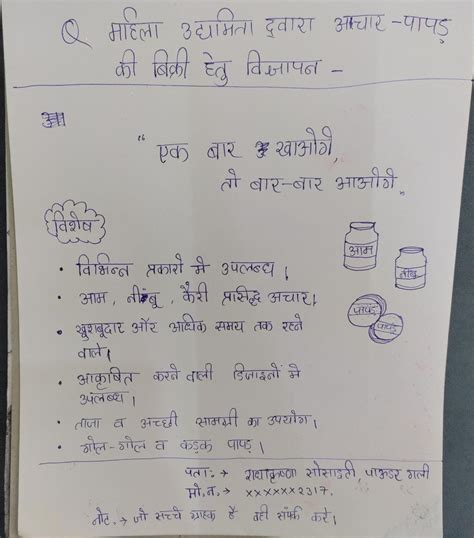 Q महिला उद्यमिता द्वारा आचार-पापड़
की बिक्री हेतु विज्ञापन -
"एक बार खाओगे,
तो बार-बार आओगे,
विशेष
• विभिन्न प्रकारो मे उपलब्ध।
आम
नींबू
• आम, नींबू, कैरी प्रसिद्ध अचार।
• खुशबूदार और अधिक समय तक रहने
वाले।
पापड़
पापड़
• आकृषित करने वाली डिजाइनों मे
उपलब्ध।
• ताजा व अच्छी सामग्री का उपयोग।
• गोल-गोल व कड़क पापड़।
पता. → राधाकृष्णा सोसाइटी, पाऊडर गली
मो.न. → xxxxxx2317.
नोट. → जो सच्चे ग्राहक है वही संर्पक करे।